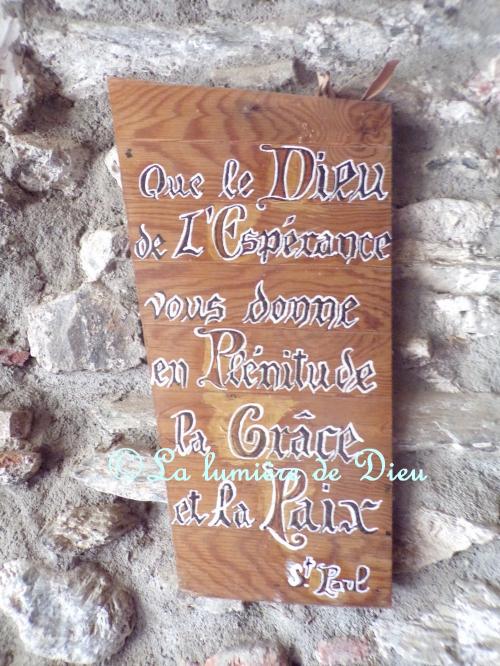 Que le Dieu
de L'Espérance
vous donne
en Plénitude
la Grâce
©La lumière de Dieu
et la Paix
St Paul